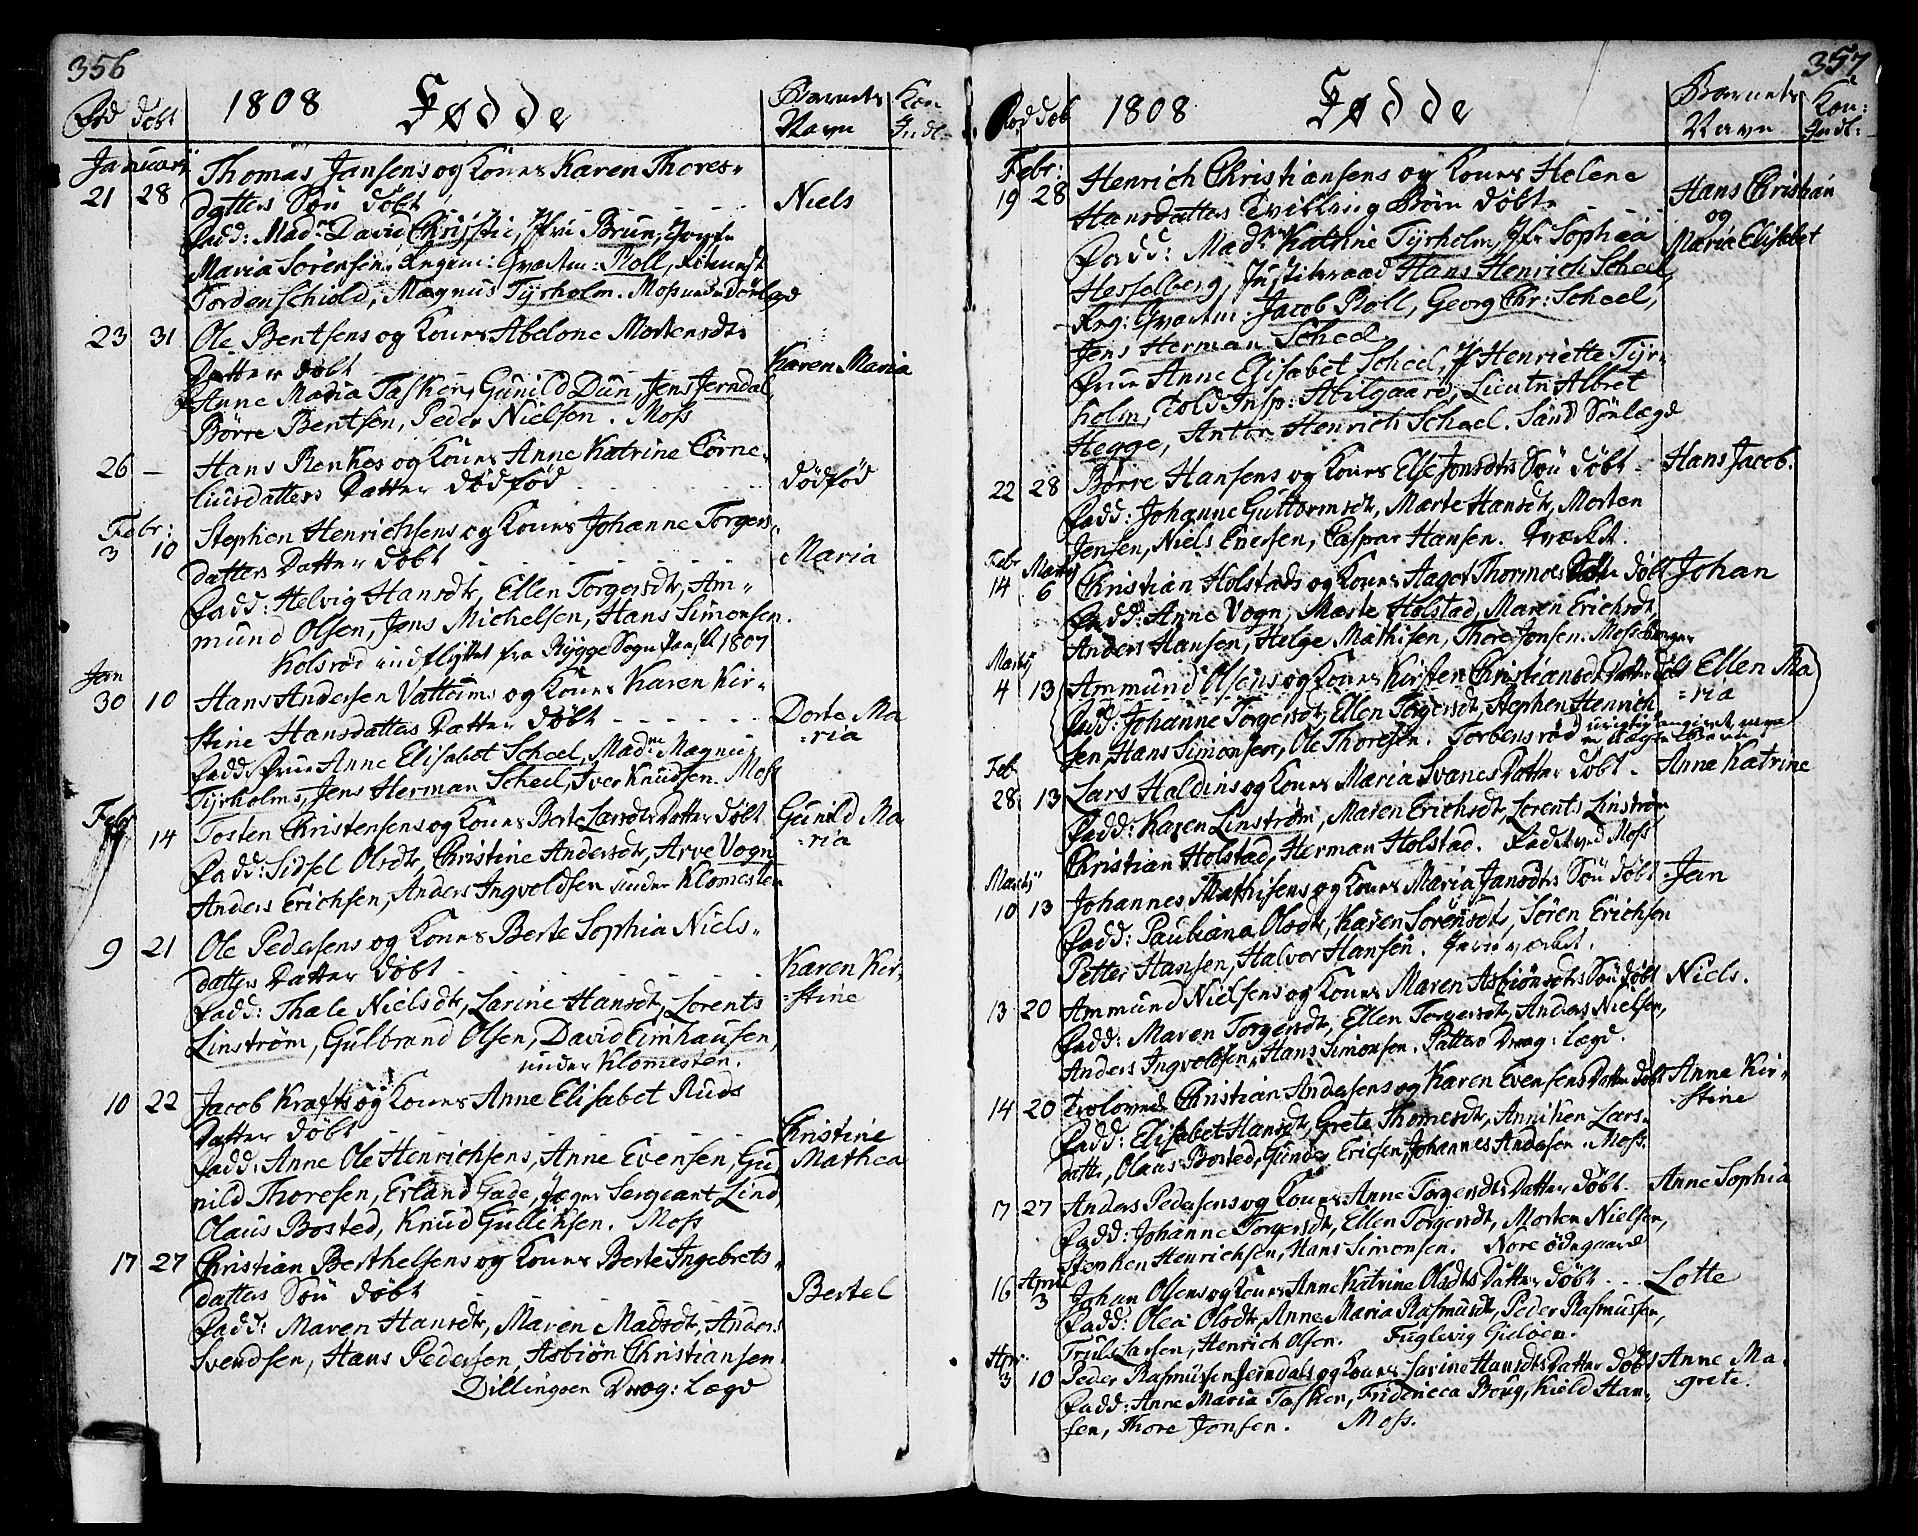 356
Fød Døbt 1808 Fødde Barnets Navn Kon: Indl:
Januarii
21 28 Thomas Jansens og Kones Karen Thores-
datters Søn døbt Niels
Fadd: Mad. David Christie, Jfru Brun, Jomfr
Maria Sørensen, Regim: Qvartm: Boll,
Tordenschiold, Magnus Tyrholm. Moss
23 31 Ole Bentsens og Kones Abelone Mortensdtr
Datter døbt Karen Maria
Anne Maria Tasken, Gunild Dun, Jens Jerndal,
Børre Bentsen, Peder Nielsen. Moss
26 — Hans Renkes og Kones Anne Katrine Corne-
liusdatters Datter dødfød dødfød
Febr:
3 10 Stephen Henrichsens og Kones Johanne Torgers-
datters Datter døbt Maria
Fadd: Helvig Hansdtr, Ellen Torgersdtr, Am-
mund Olsen, Jens Michelsen, Hans Simonsen.
Kolsrød indflyttet fra Rygge Sogn 1807
Jan
30 10 Hans Andersen Vattums og Kones Karen Kir-
stine Hansdatters Datter døbt Dorte Ma
-ria
Fadd: Frue Anne Elisabet Scheel, Mad. Magnus
Tyrholms, Jens Herman Scheel, Iver Knudsen. Moss
Febr
14 Tosten Christensens og Kones Berte Larsdtrs Datter døbt Gunild Ma
-ria
Fadd: Sidsel Olsdtr, Christine Andersdtr, Arve Vogn
Anders Erichsen, Anders Ingvoldsen under Klomesten
9 21 Ole Pedersens og Kones Berte Sophia Niels-
datters Datter døbt Karen Kir-
-stine
Fadd: Thale Nielsdtr, Larine Hansdtr, Lorents
Linstrøm, Gulbrand Olsen, David Eimhausen,
under Klomesten.
10 22 Jacob Krafts og Kones Anne Elisabet Ruds
Datter døbt Christine
Mathea
Fadd: Anne Ole Henrichsens, Anne Evensen, Gu-
nild Thoresen, Erland Gade, Jæger Sergeant Lind,
Olaus Bosted, Knud Gullichsen. Moss
17 27 Christian Berthelsens og Kones Berte Ingebrets-
datters Søn døbt Bertel
Fadd: Maren Hansdtr, Maren Madsdtr, Anders
Svendsen, Hans Pedersen, Asbiøn Christiansen
Dillingøen Drag: Lægd
357
Fød Døb 1808 Fødde Barnets Navn Kon: Indl:
Febr:
19 28 Henrich Christiansens og Kones Helene
Hansdatters Tvilling Børn døbt Hans Christian
og
Maria Elisabet
Fadd: Mad. Katrine Tyrholm, Jfr Sophia
Hesselberg, Justitsraad Hans Henrich Scheel,
Reg: Qvartm: Jacob Boll, Georg Chr: Scheel,
Jens Herman Scheel
Frue Anne Elisabet Scheel, Jf Henriette Tyr-
holm, Told Insp: Abilgaard, Lieutn Albret
Hegge, Anton Henrich Scheel. Sand Sørlægd
22 28 Børre Hansens og Kones Else Jonsdtrs Søn døbt Hans Jacob.
Fadd: Johanne Guttormsdtr, Marte Hansdtr, Morten
Jensen, Niels Evensen, Caspar Hansen.
Febr Martij
14 6 Christian Holstads og Kones Aaget Thormoes døbt Johan
Fadd: Anne Vogn, Marte Holstad, Maren Erichsdtr,
Anders Hansen, Helge Mathisen, Thore Jonsen. Moss
Martij
4 13 Ammund Olsens og Kones Kirsten Christiansdt Datter døbt Ellen Ma
-ria
Fadd: Johanne Torgersdtr, Ellen Torgersdtr, Stephen Henrich
sen, Hans Simonsen, Ole Thoresen. Torbensrød urigtig angivet
Feb
28 13 Lars Haldins og Kones Maria Svanes Datter døbt Anne Katrine
Fadd: Karen Linstrøm, Maren Erichsdtr, Lorents Linstrøm
Christian Holstad, Herman Holstad. Moss
Martij
10 13 Johannes Mathisens og Kones Maria Jansdtrs Søn døbt Jan
Fadd: Pauliana Olsdtr, Karen Sørensdtr, Søren Erichsen
Petter Hansen, Halvor Hansen. Jernværket.
13 20 Ammund Nielsens og Kones Maren Asbiønsdtrs Søn døbt Niels.
Fadd: Maren Torgersdtr, Ellen Torgersdtr, Anders Nielsen,
Anders Ingvoldsen, Hans Simonsen. Patterø Drag: Lægd.
14 20 Trolovede Christian Andersens og Karen Evensens Datter døbt Anne Kir-
-stine
Fadd: Elisabet Hansdtr, Grete Thomesdtr, Anniken Lars-
datter, Olaus Bosted, Gunder Ericsen, Johannes Andersen. Moss.
17 27 Anders Pedersens og Kones Anne Torgersdtrs Datter døbt Anne Sophia
Fadd: Johanne Torgersdtr, Ellen Torgersdtr, Morten Nielsen,
Stephen Henrichsen, Hans Simonsen. Nore ødegaard
April
16 3 Johan Olsens og Kones Anne Katrine Olsdtrs Datter døbt Lotte
Fadd: Olea Olsdtr, Anne Maria Rasmusdtr, Peder Rasmussen,
Truls Larsen, Henrich Olsen. Fuglevig Gieløen.
Apr.
3 10 Peder Rasmussen Jerndals og Kones Larine Hansdtrs Datter døbt Anne Ma-
grete.
Fadd: Anne Maria Tasken, Fridericca Borg, Kield Han-
sen, Thore Jonsen. Moss.